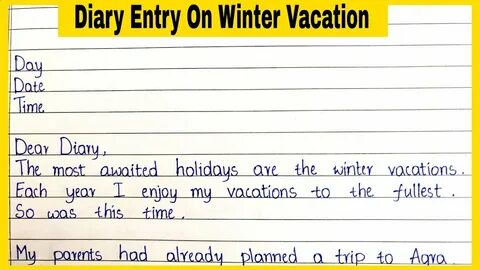 Diary Entry On Winter Vacation
Day
Date
Time
Dear Diary,
The most awaited holidays are the winter vacations.
Each year I enjoy my vacations to the fullest.
So was this time.
My parents had already planned a trip to Agra.